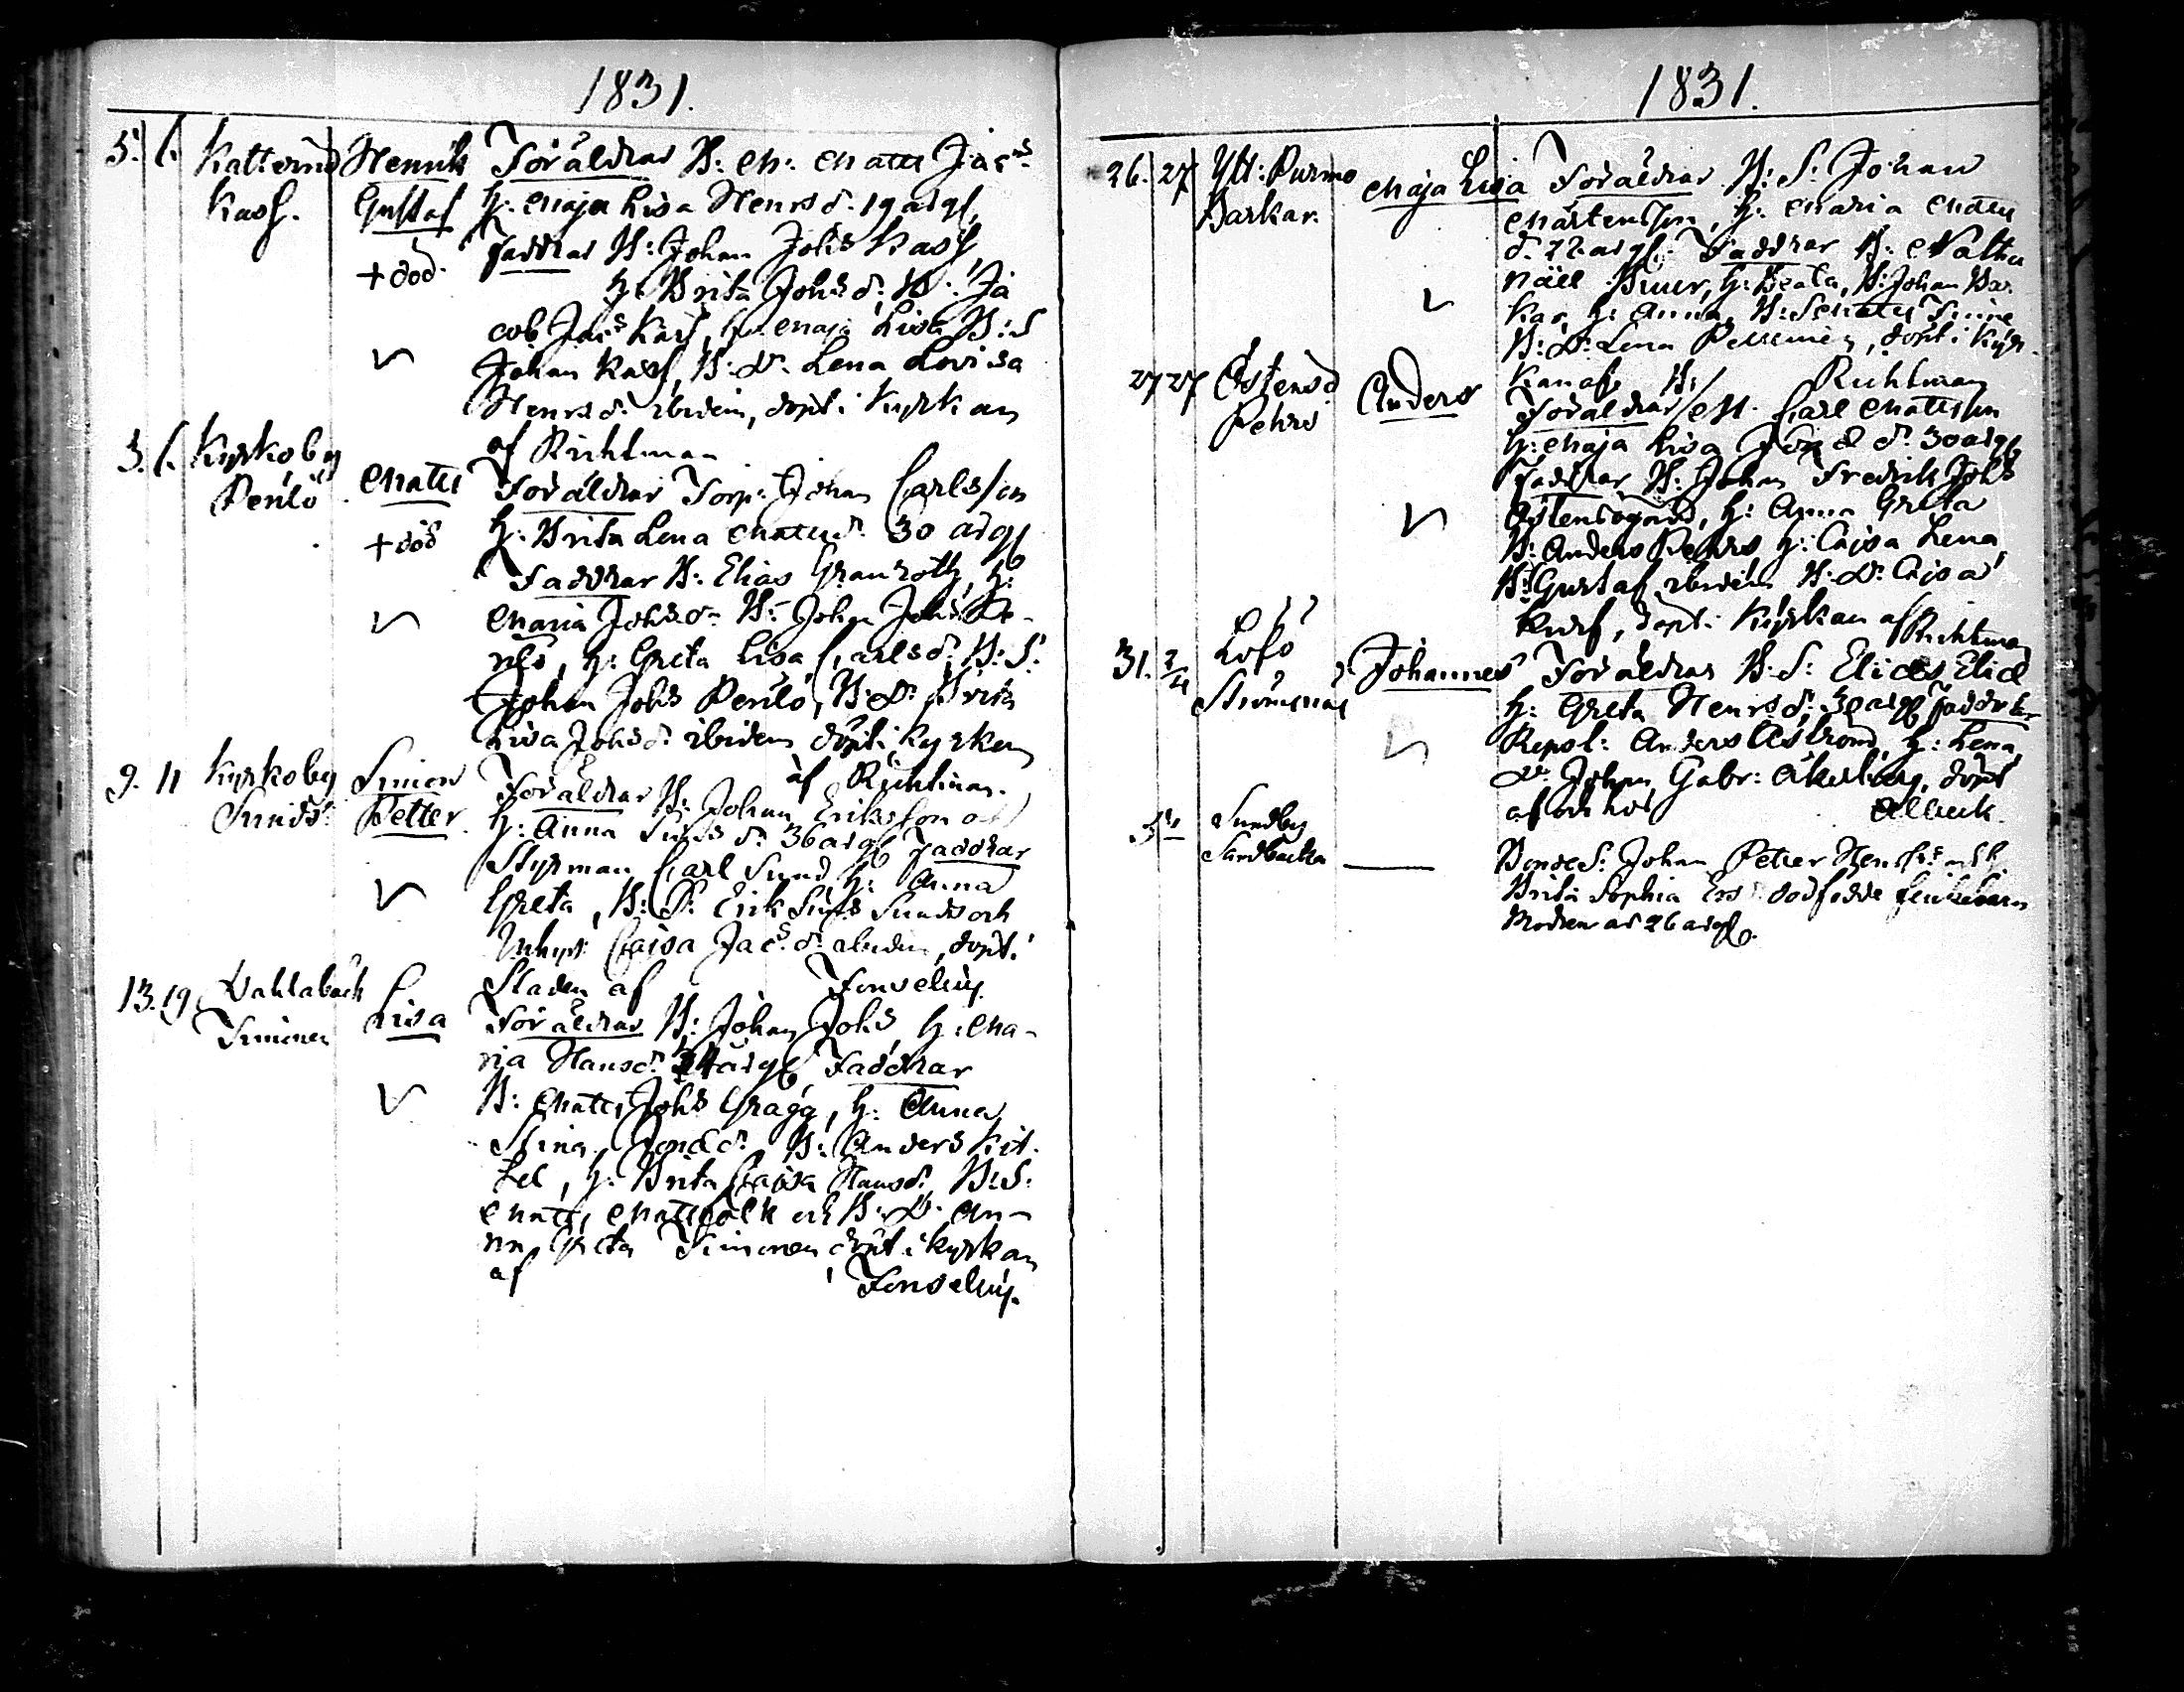 1831.
5. 6. Katternö Kass.
Henrik Gustaf
+ död.
Föräldrar B: M: Matts Jacs
h: Maja Lisa Henrsdr 19 årg,
faddrar B: Johan Johs Kass,
h: Brita Johsdr, B: Ja
cob Jacs Kass, h: Maja Lisa B: S
Johan Kass, B: Dr Lena Lovisa
Henrsdr ibidem, döpt i Kyrkan
af Richtman
3. 6. Kyrkoby Perilö
Matts
+ död
Föräldrar Torp: Johan Carlsson
h: Brita Lena Mattsdr 30 årg
Faddrar B: Elias Granroth, h:
Maria Johsdr B: Johan Johs Pe-
rilö, h: Greta Lisa Carlsdr, B: S:
Johan Johs Perilö, B: Dr Brita
Lisa Johsdr ibidem döpt i Kyrkan
af Richtman.
9. 11 Kyrkoby Sunds
Simon Petter
Föräldrar B: Johan Eriksson och
h: Anna Sunds dr 36 årg faddrar
Styrman Carl Sund, h: Anna
Greta, B: S: Erik Sunds Sunds och
Caisa Jacs dr ibidem, döpt i
Staden af Fonselius.
13. 19 Dahlabäck Simonen
Lisa
Föräldrar B: Johan Johs, h: Ma-
ria Hansdr 34 årg Faddrar
B: Matts Johs Gragg, h: Anna
Stina B: Anders Kit-
tel, h: Brita Caisa Hansdr B: S:
Matts och B: D: An-
na Greta Simonen döpt i kyrkan
af Fonselius.
1831.
26. 27 Ytt: Purmo Barkar.
Maja Lisa
Föräldrar B: S: Johan
Mårtensson, h: Maria Matts
dr 22 årg. Faddrar B: Natha
näel h: Beata, B: Johan Bar
kar, h: Anna, B: S: Matts Finne
B: Dr Lena döpt i Kyr-
kan af Richtman
27 27 Östensö Pehrs
Anders
Föräldrar B: M: Carl Mattsson
h: Maja Lisa dr 30 årg
Faddrar B: Johan Fredrik Johs
Östensögård, h: Anna Greta
B: Anders Pehrs h: Cajsa Lena
B: S: Gustaf ibidem B: Dr Cajsa
döpt i Kyrkan af Richtman
31. 2/4 Löfö Strömsnäs
Johannes
Föräldrar B: S: Elias Elias
h: Greta Henrsdr 30 årg faddrar
Repsl: Anders Åström, h: Lena,
Dr Johan Gabr: Åkerberg, döpt
af och hos Albeck.
Sundby Sandbacka
—
Bonde S: Johan Petter
Brita Sophia Ersdr dödfödde flickebarn
Modren är 26 årg.